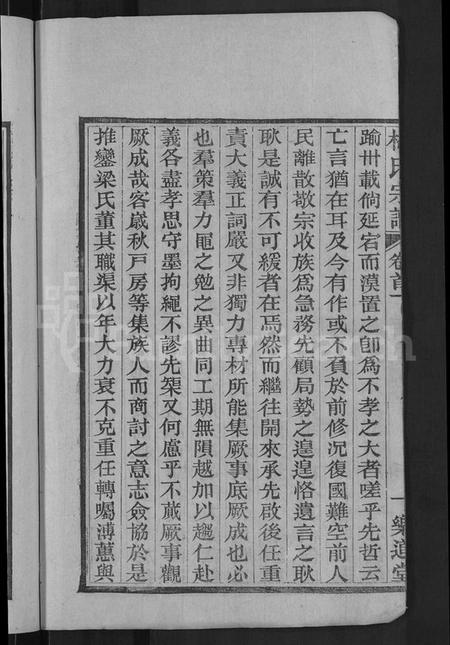 氏宗譜 卷首 一 樂道堂
踰卅載倘延宕而漠置之卽爲不孝之大者嗟乎先哲云
亡言猶在耳及今有作或不負於前修況復國難空前人
民離散敬宗收族爲急務先顧局勢之遑遑恪遺言之耿
耿是誠有不可緩者在焉然而繼往開來承先啟後任重
責大義正詞嚴又非獨力專材所能集厥事底厥成也必
也羣策羣力黽之勉之異曲同工期無隕越加以趨仁赴
義各盡孝思守墨拘繩不謬先榘又何慮乎不蕆厥事觀
厥成哉客歲秋戸房等集族人而商討之意志僉協於是
推鑾梁氏董其職渠以年大力衰不克重任轉囑溥蕙與